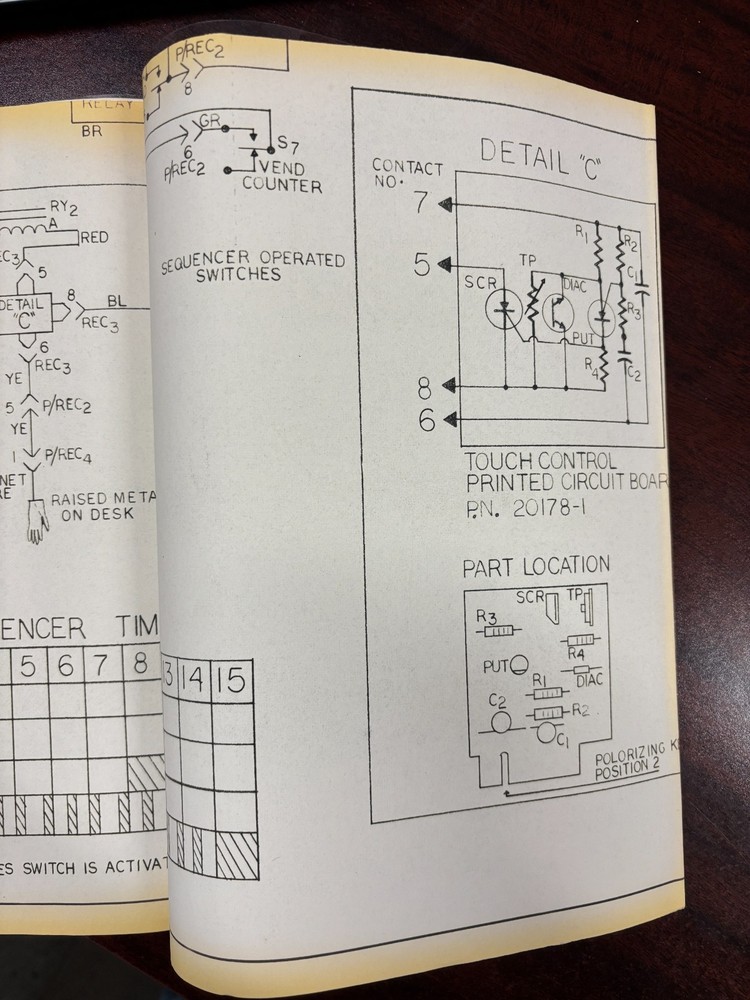 RELAY
BR
RY2
A
RED
5
DETAIL
"C"
8
BL
REC3
6
REC3
YE
5 P/REC2
YE
1 P/REC4
RAISED META
ON DESK
ENCER TIM
5 6 7 8
ES SWITCH IS ACTIVAT
P/REC2
8
GR
6
P/REC2
S7
VEND
COUNTER
SEQUENCER OPERATED
SWITCHES
3 14 15
DETAIL "C"
CONTACT
NO.
7
5
8
6
R1
R2
C1
TP
SCR
DIAC
R3
PUT
R4
C2
TOUCH CONTROL
PRINTED CIRCUIT BOAR
P.N. 20178-1
PART LOCATION
SCR
TP
R3
R4
PUT
DIAC
R1
C2
R2
C1
POLORIZING K
POSITION 2